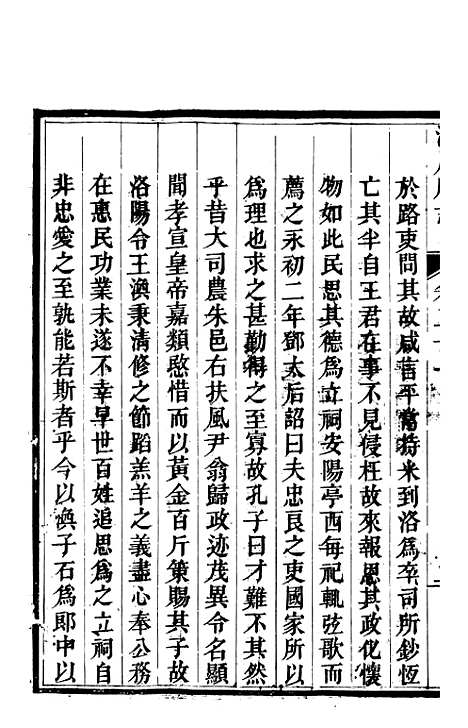 於路吏問其故咸言平常持米到洛為卒司所鈔恆
亡其半自王君在事不見侵枉故來報恩其政化懷
物如此民思其德為立祠安陽亭西每祀輒弦歌而
薦之永初二年鄧太后詔曰夫忠良之吏國家所以
為理也求之甚勤得之至寡故孔子曰才難不其然
乎昔大司農朱邑右扶風尹翁歸政迹茂異令名顯
聞孝宣皇帝嘉類愍惜而以黃金百斤策賜其子故
洛陽令王渙秉清修之節蹈羔羊之義盡心奉公務
在惠民功業未遂不幸早世百姓追思為之立祠自
非忠愛之至孰能若斯者乎今以渙子石為郎中以